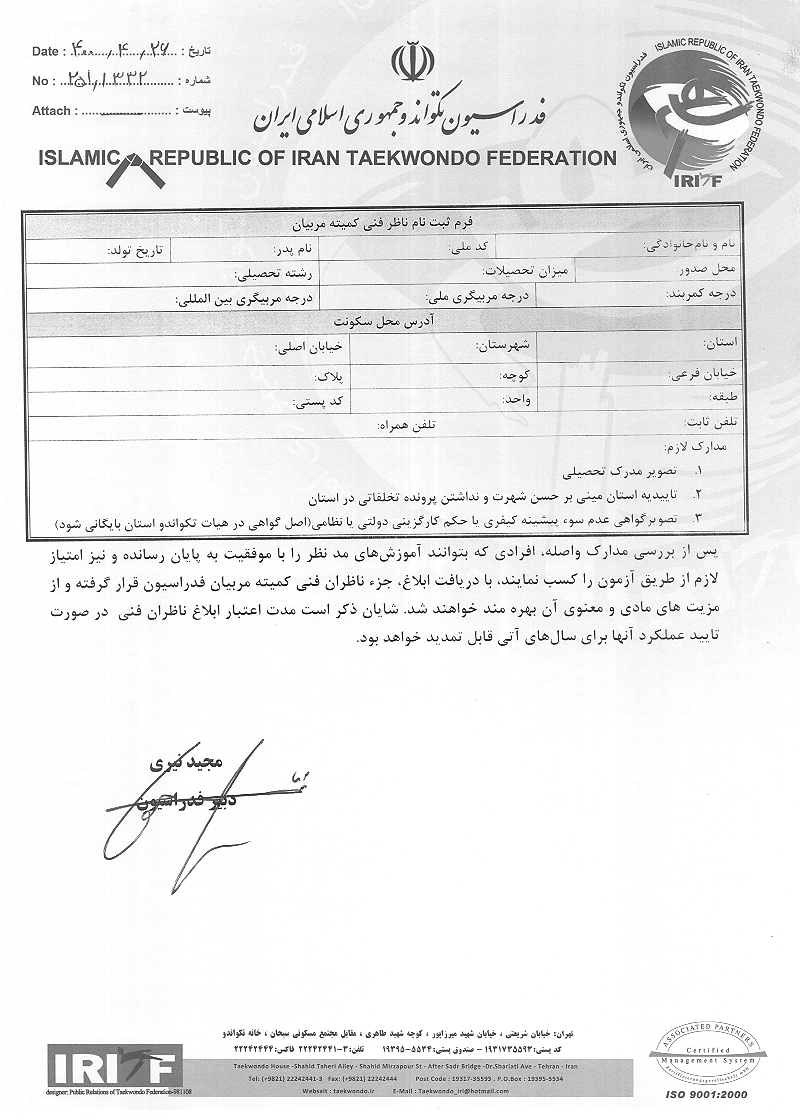 Date : ۴۰۰/۴/۲۷ : تاریخ
No : ۲۵۱/۱۳۳۲ : شماره
Attach : ........................ : پیوست
فدراسیون تکواندو جمهوری اسلامی ایران
ISLAMIC REPUBLIC OF IRAN TAEKWONDO FEDERATION
ISLAMIC REPUBLIC OF IRAN TAEKWONDO FEDERATION
فدراسیون تکواندو جمهوری اسلامی ایران
IRITF
فرم ثبت نام ناظر فنی کمیته مربیان
نام و نام‌خانوادگی: کد ملی: نام پدر: تاریخ تولد:
محل صدور میزان تحصیلات: رشته تحصیلی:
درجه کمربند: درجه مربیگری ملی: درجه مربیگری بین المللی:
آدرس محل سکونت
استان: شهرستان: خیابان اصلی:
خیابان فرعی: کوچه: پلاک:
طبقه: واحد: کد پستی:
تلفن ثابت: تلفن همراه:
مدارک لازم:
۱. تصویر مدرک تحصیلی
۲. تاییدیه استان مبنی بر حسن شهرت و نداشتن پرونده تخلفاتی در استان
۳. تصویرگواهی عدم سوء پیشینه کیفری یا حکم کارگزینی دولتی یا نظامی(اصل گواهی در هیات تکواندو استان بایگانی شود)
پس از بررسی مدارک واصله، افرادی که بتوانند آموزش‌های مد نظر را با موفقیت به پایان رسانده و نیز امتیاز
لازم از طریق آزمون را کسب نمایند، با دریافت ابلاغ، جزء ناظران فنی کمیته مربیان فدراسیون قرار گرفته و از
مزیت های مادی و معنوی آن بهره مند خواهند شد. شایان ذکر است مدت اعتبار ابلاغ ناظران فنی در صورت
تایید عملکرد آنها برای سال‌های آتی قابل تمدید خواهد بود.
مجید نیری
دبیر فدراسیون
تهران: خیابان شریعتی ، خیابان شهید میرزاپور ، کوچه شهید طاهری ، مقابل مجتمع مسکونی سبحان ، خانه تکواندو
کد پستی: ۱۹۳۱۷۳۵۵۹۳ – صندوق پستی: ۵۵۳۴-۱۹۳۹۵ تلفن: ۳-۲۲۲۴۲۴۴۱ فاکس: ۲۲۲۴۲۴۴۴
Taekwondo House - Shahid Taheri Alley - Shahid Mirzapour St - After Sadr Bridge -Dr.Shariati Ave - Tehran - Iran
Tel: (+9821) 22242441-3 Fax: (+9821) 22242444 Post Code : 19317-35593 . P.O.Box : 19395-5534
Websait : taekwondo.ir E-Mail : Taekwondo_iri@hotmail.com
IRITF
designer: Public Relations of Taekwondo Federation-981108
ASSOCIATED PARTNERS
Certified
Management System
ISO 9001:2000